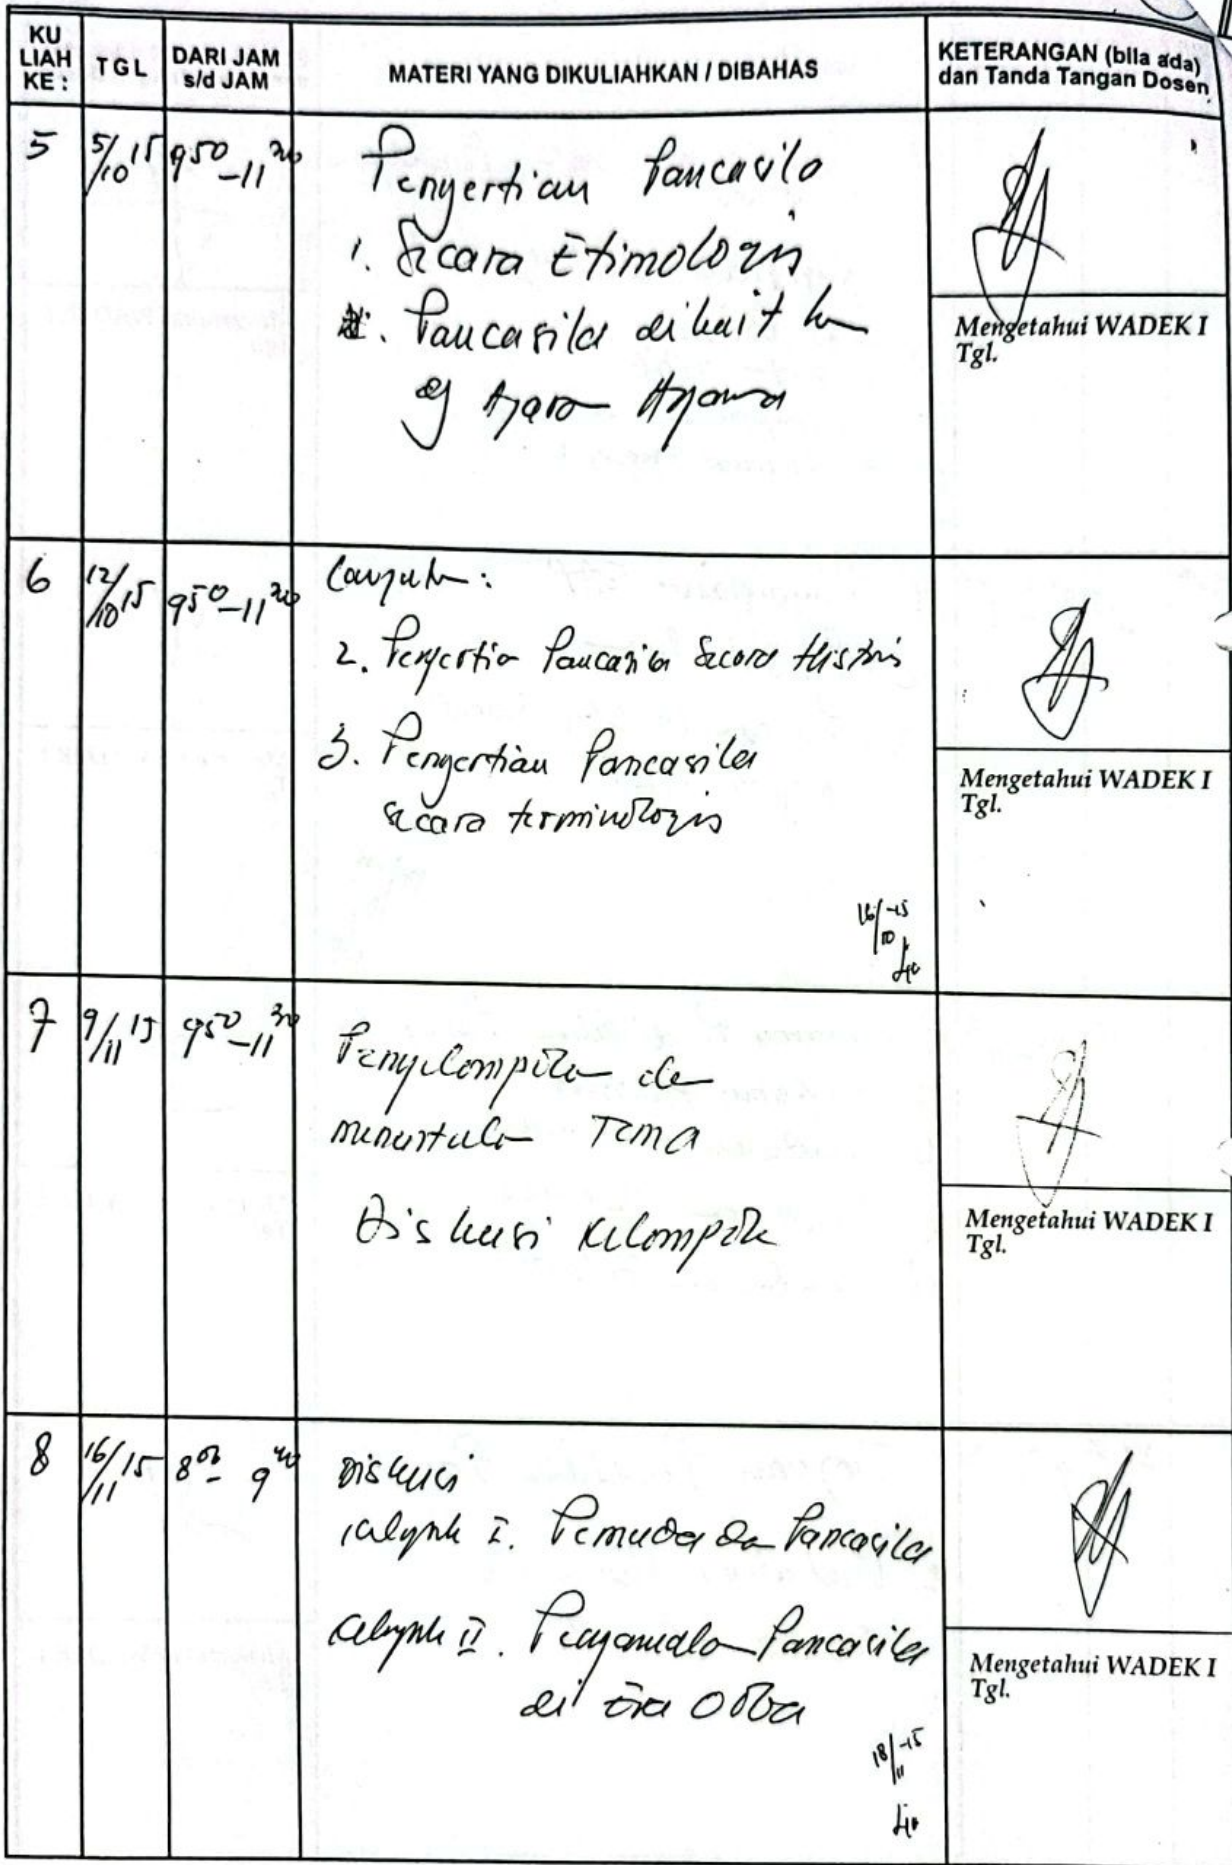 KU LIAH KE : TGL DARI JAM s/d JAM MATERI YANG DIKULIAHKAN / DIBAHAS KETERANGAN (bila ada) dan Tanda Tangan Dosen
5 5/10 15 9 50 - 11 30 Pengertian Pancasila
1. Secara Etimologis
Pancasila dikaitkan
dg Ajaran Agama
Mengetahui WADEK I
Tgl.
6 12/10 15 9 50 - 11 30 Lanjutan :
2. Pengertian Pancasila Secara Historis
3. Pengertian Pancasila
secara terminologis
Mengetahui WADEK I
Tgl.
16/10 -15
7 9/11 15 9 50 - 11 30 Pengelompokan dan
menentukan Tema
Diskusi Kelompok
Mengetahui WADEK I
Tgl.
8 16/11 15 8 00 - 9 40 Diskusi
Kelompok I. Pemuda dan Pancasila
Kelompok II. Pengamalan Pancasila
di Era Orba
Mengetahui WADEK I
Tgl.
18/11 -15